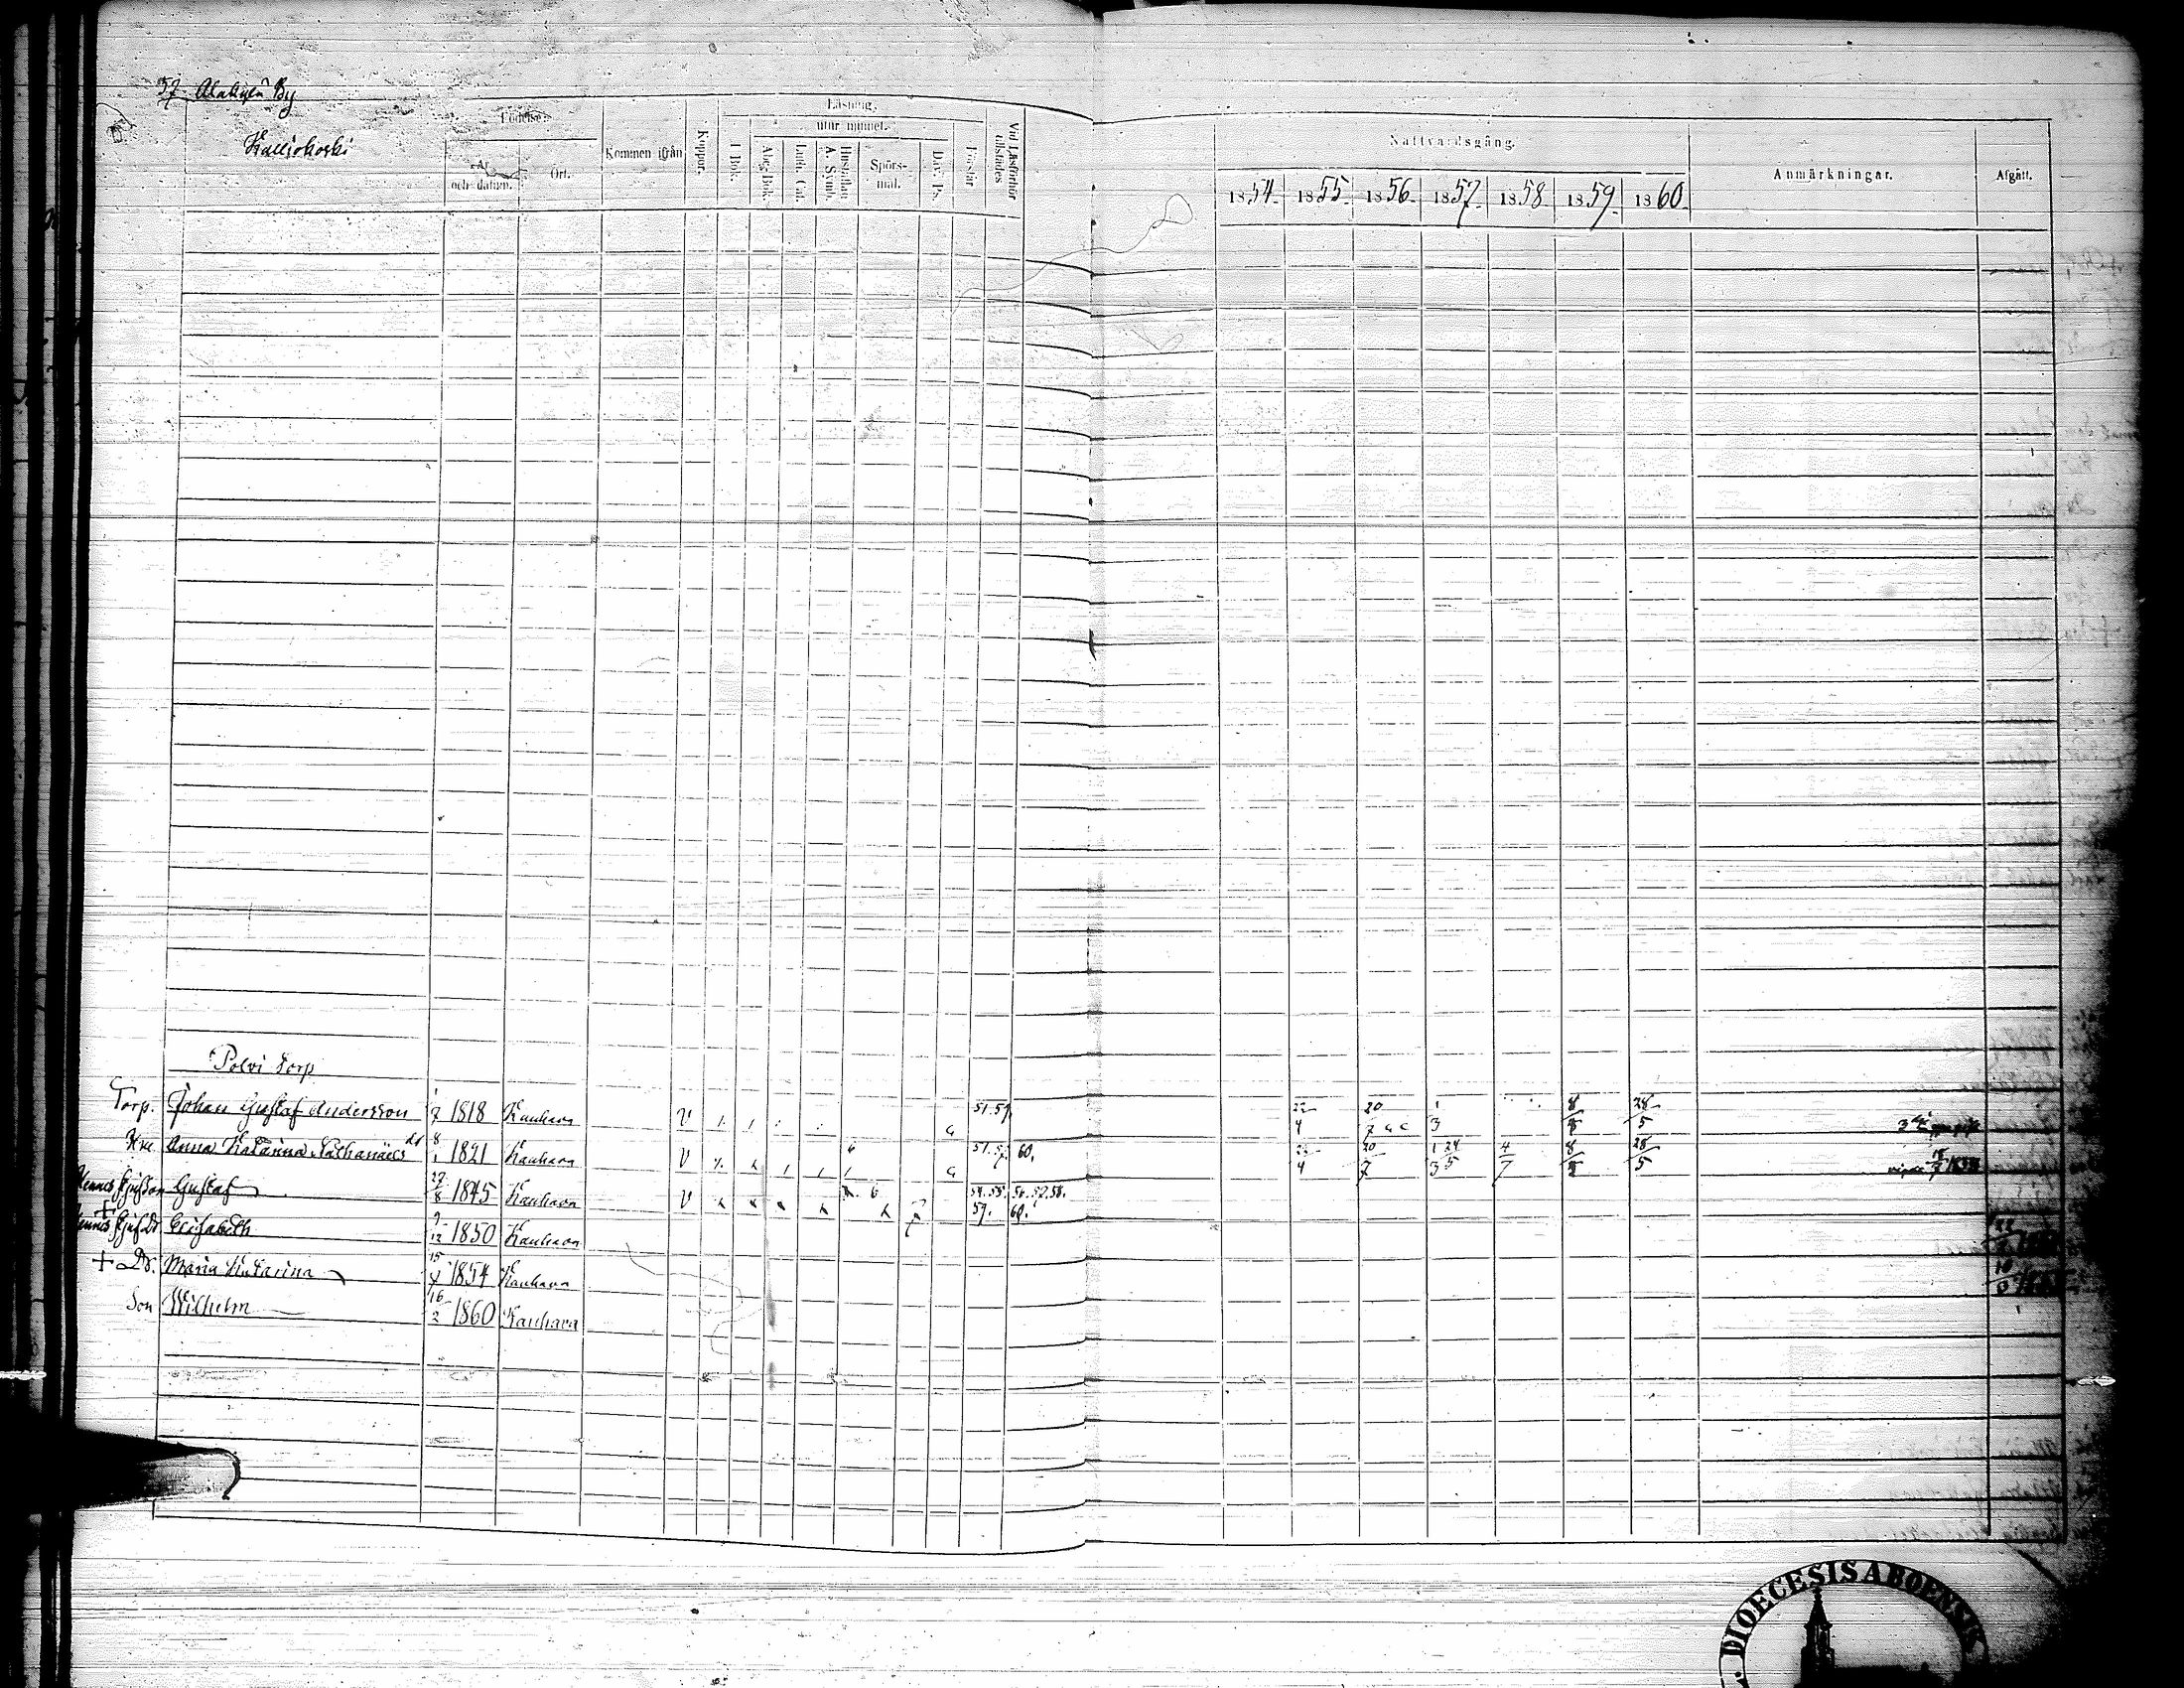 57. Alakylä By
Kalliokoski
Födelse-
År och datum.
Ort.
Kommen ifrån
Koppor.
Läsning.
I Bok.
utur minnet.
Abc-Bok.
Luth. Cat.
Hustaflan A. Symb.
Spörs-mål.
Dav. Ps.
Förstår
Vid Läsförhör tillstädes
Nattvardsgång.
1854. 1855. 1856. 1857. 1858. 1859. 1860.
Anmärkningar.
Afgått.
Polvi Torp
Torp. Johan Gustaf Andersson 1818 Kauhava V 22/4 20/7 1/3 8/8 28/5
Anna Katarina Nathanaelsdr 8/1 1821 Kauhava V 60. 22/4 20/7 1/3 24/5 4/7 8/8 28/5
Gustaf 1845 Kauhava V 54. 55. 56. 57. 58. 59. 60.
Elisabeth 9/12 1850 Kauhava
+ Dr. Maria Katarina 1854 Kauhava
Son Wilhelm 16/2 1860 Kauhava
DIOECESIS ABOENSIS